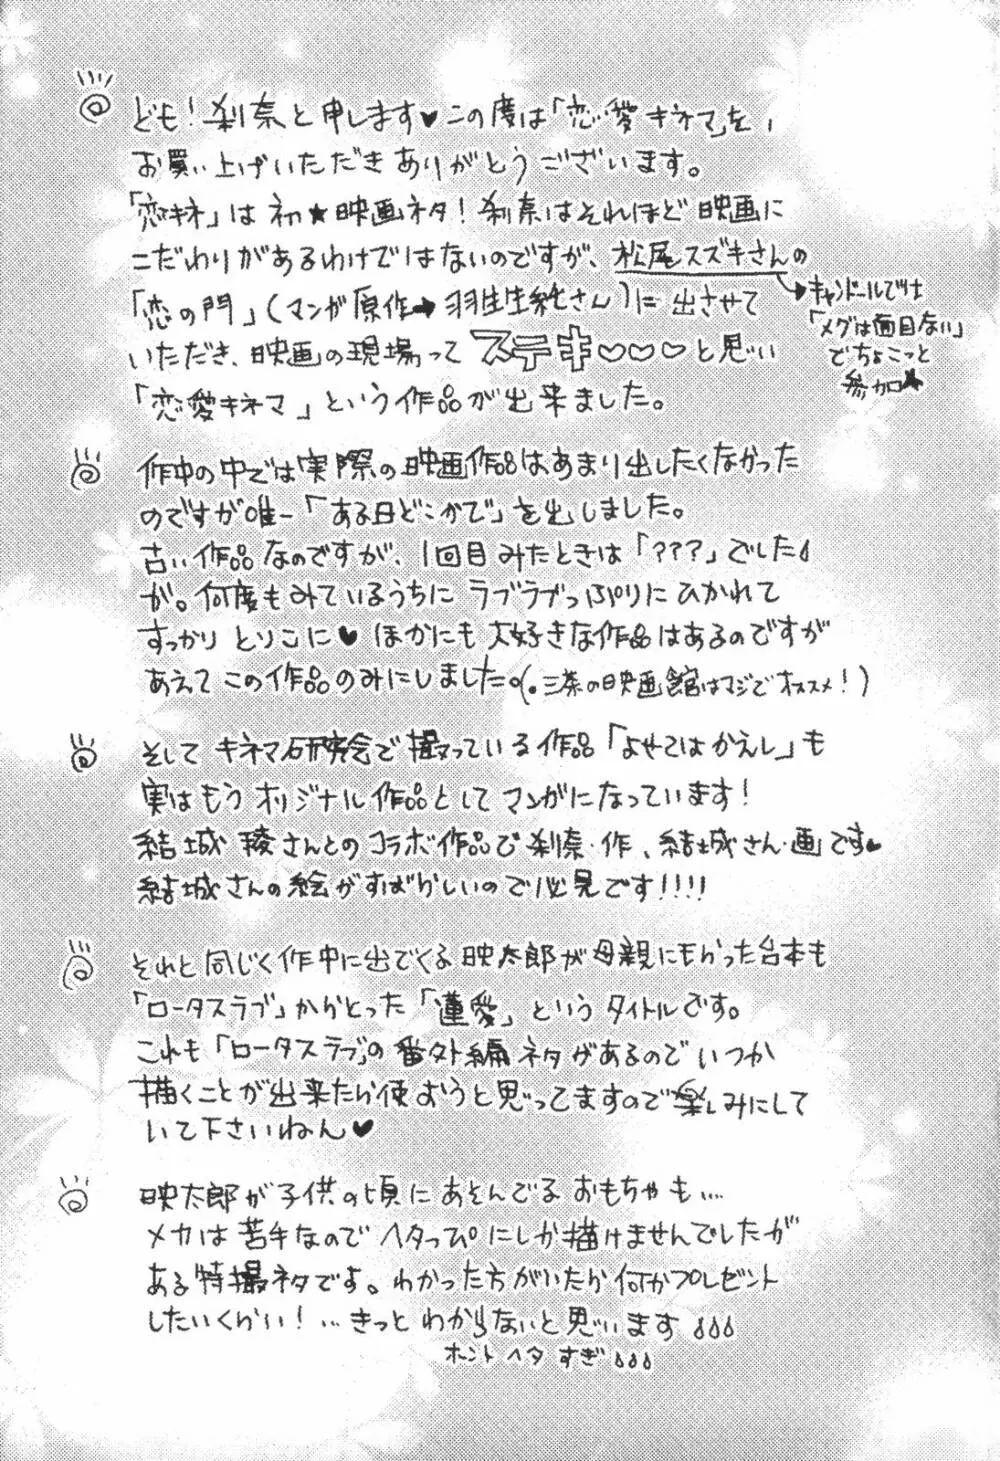 ども！刹奈と申します♥この度は「恋愛キネマ」を、
お買い上げいただきありがとうございます。
「恋キネ」は初★映画ネタ！刹奈はそれほど映画に
こだわりがあるわけではないのですが、松尾スズキさんの
「恋の門」(マンガ原作→羽生生純さん)に出させて
いただき、映画の現場ってステキ♡♡♡と思い
「恋愛キネマ」という作品が出来ました。
キャンドールでは
「メグは面目ない」
でちょこっと
参加★
作中の中では実際の映画作品はあまり出したくなかった
のですが唯一「ある日どこかで」を出しました。
古い作品なのですが、1回目みたときは「???」でした
が。何度もみているうちにラブラブっぷりにひかれて
すっかりとりこに♥ほかにも大好きな作品はあるのですが
あえてこの作品のみにしました。(・三茶の映画館はマジでオススメ！)
そしてキネマ研究会で撮っている作品「よせてはかえし」も
実はもうオリジナル作品としてマンガになっています！
結城稜さんとのコラボ作品で刹奈・作、結城さん・画です♥
結城さんの絵がすばらしいので必見です!!!!
それと同じく作中に出でくる映太郎が母親にもらった台本も
「ロータスラブ」からとった「蓮愛」というタイトルです。
これも「ロータスラブ」の番外編ネタがあるのでいつか
描くことが出来たら使おうと思ってますので楽しみにして
いて下さいねん♥
映太郎が子供の頃にあそんでるおもちゃも…
メカは苦手なのでヘタっぴにしか描けませんでしたが
ある特撮ネタですよ。わかった方がいたら何かプレゼント
したいくらい！…きっとわからないと思います
ホントヘタすぎ